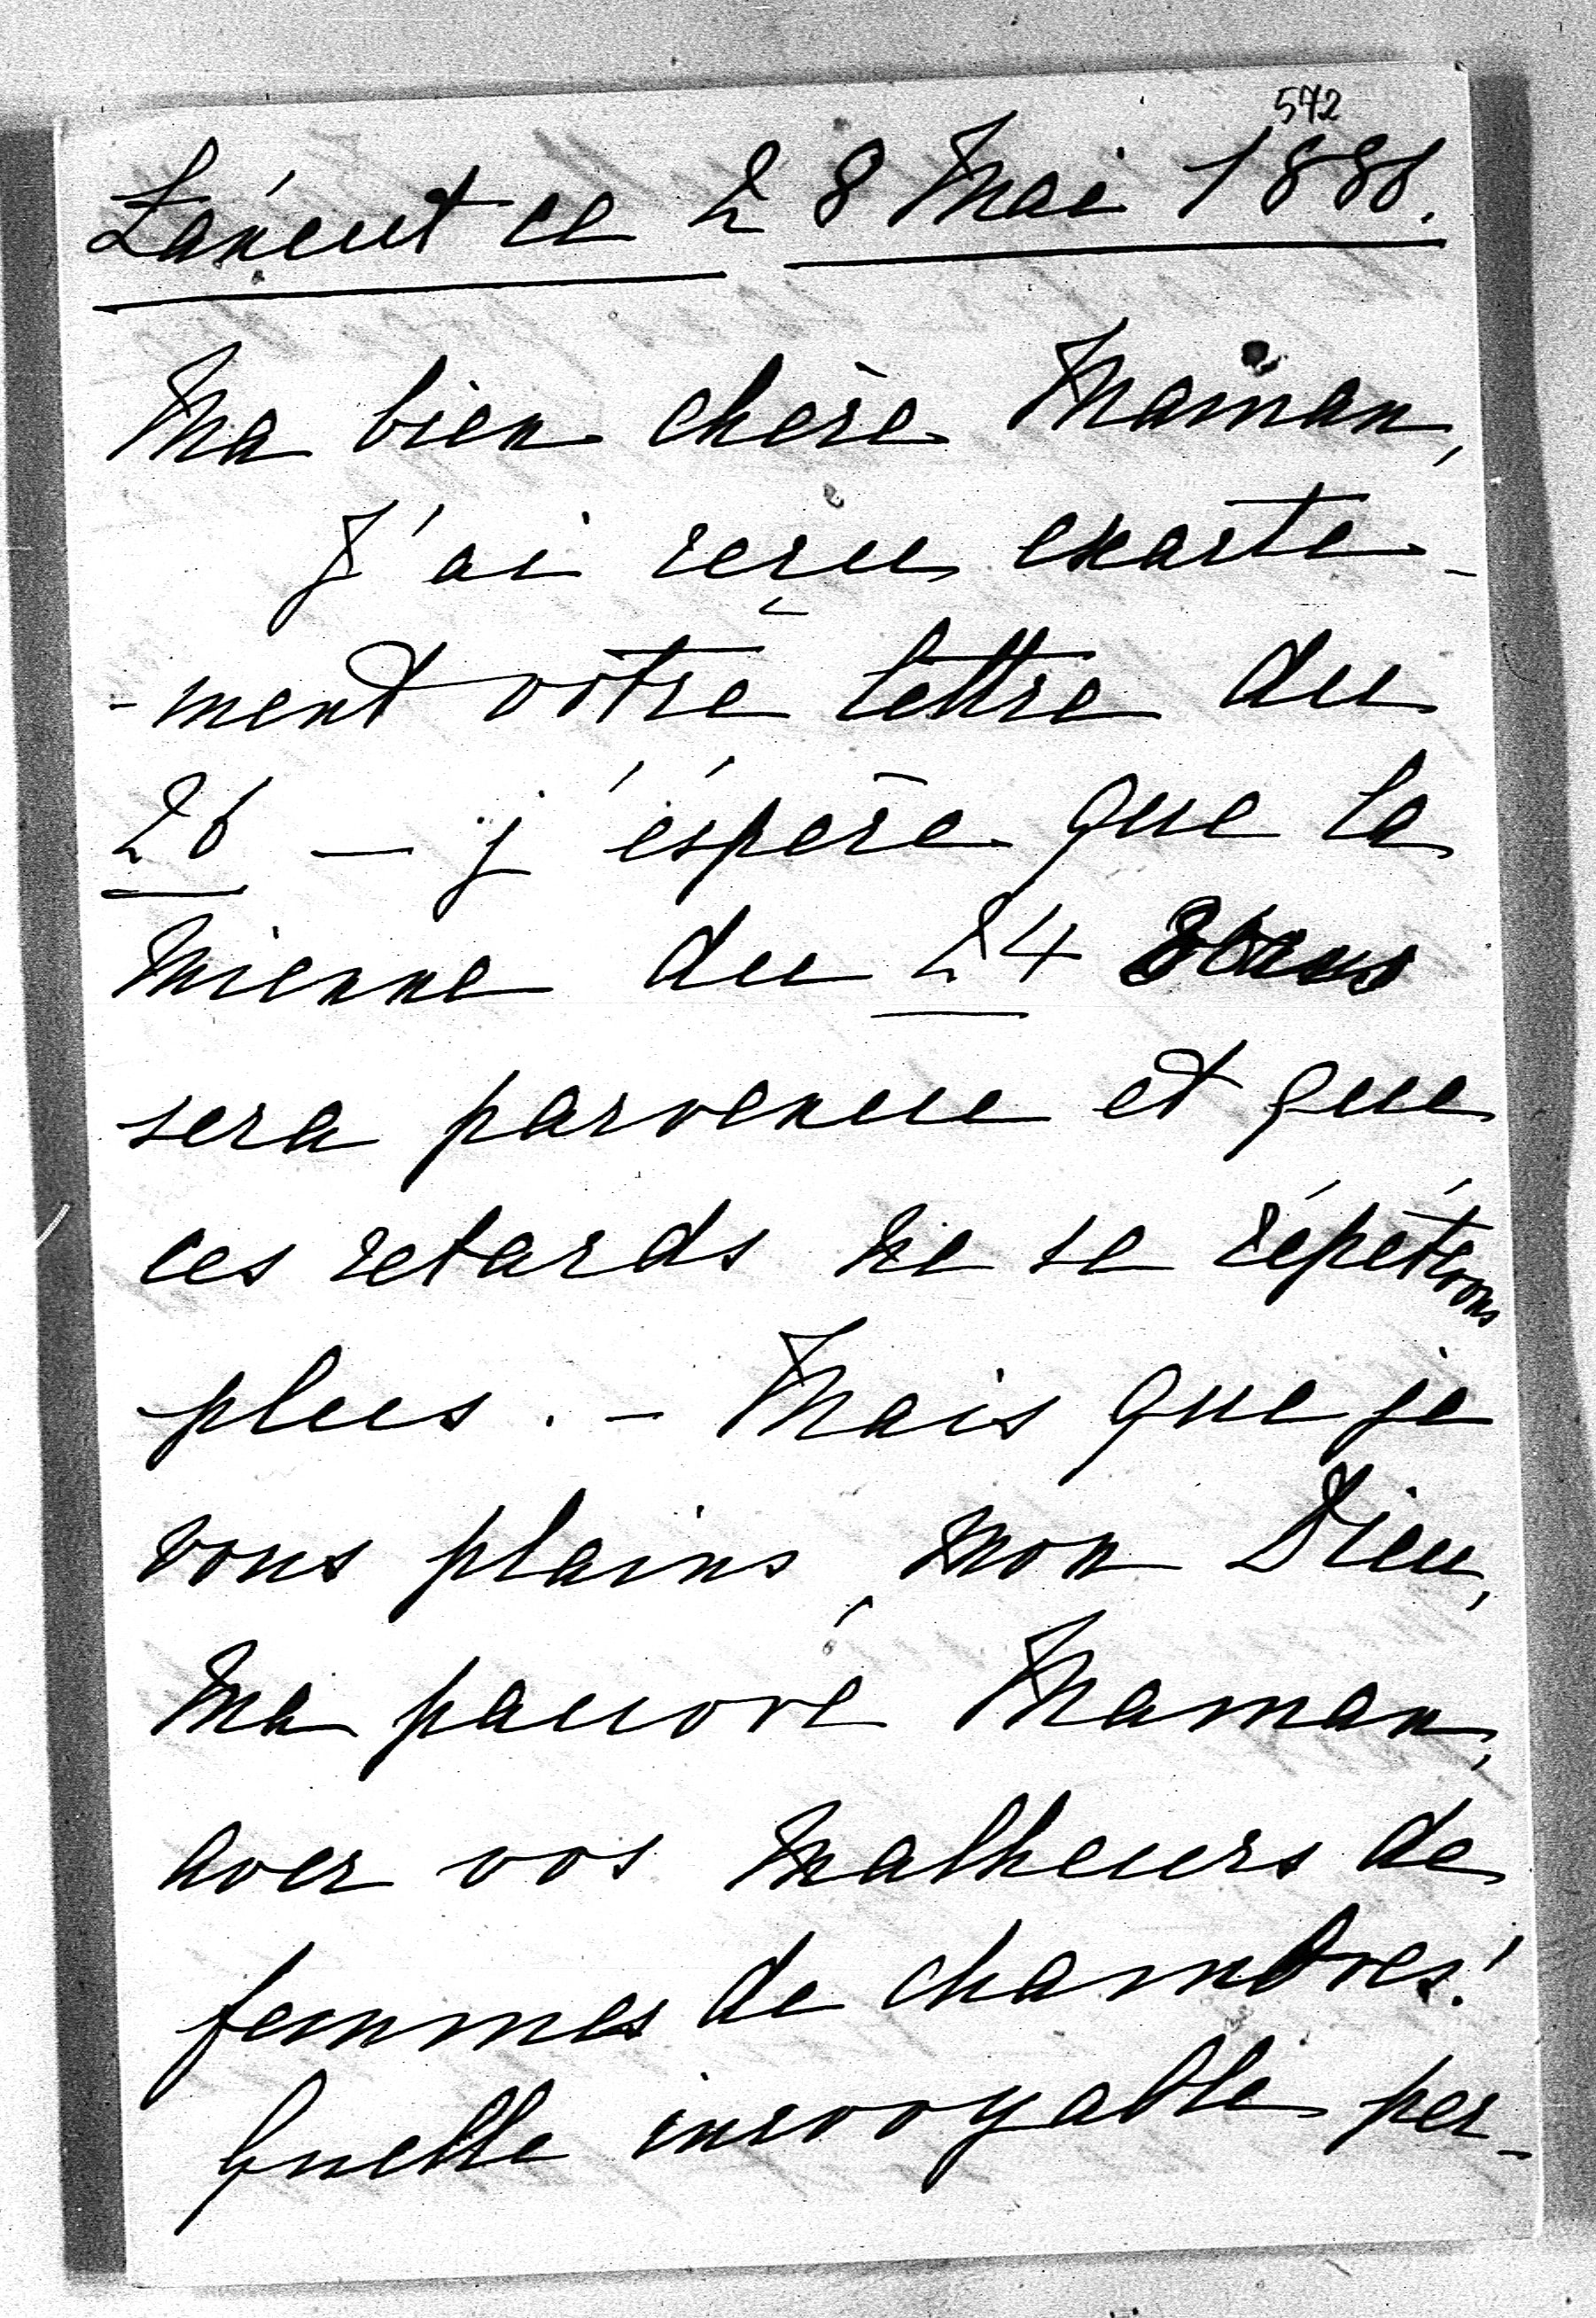 572
Łańcut ce 28 Mai 1888.
Ma bien chère Maman,
J'ai reçu exacte-
-ment votre lettre du
26 — j'éspère que la
mienne du 24 vous
sera parvenue et que
ces retards ne se répétrons
plus. — Mais que je
vous plains, mon Dieu,
ma pauvre Maman,
avec vos malheurs de
femmes de chambres!
Quelle incroyable per-